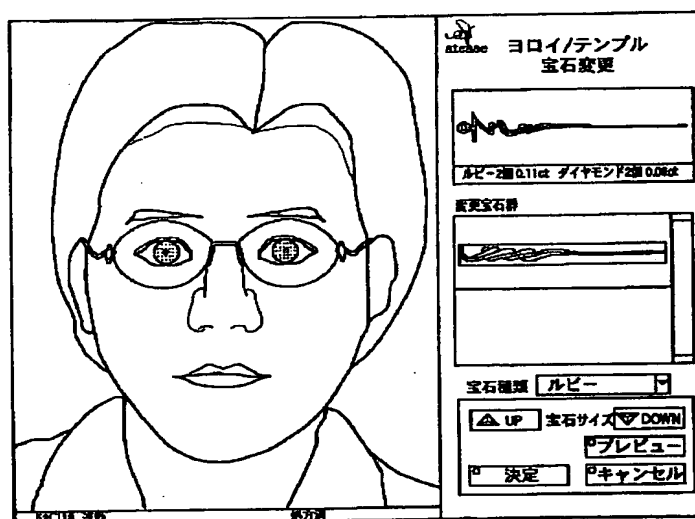 atease
ヨロイ/テンプル
宝石変更
ルビー2個 0.11ct ダイヤモンド2個 0.06ct
変更宝石群
宝石種類 ルビー
UP 宝石サイズ DOWN
プレビュー
決定 キャンセル